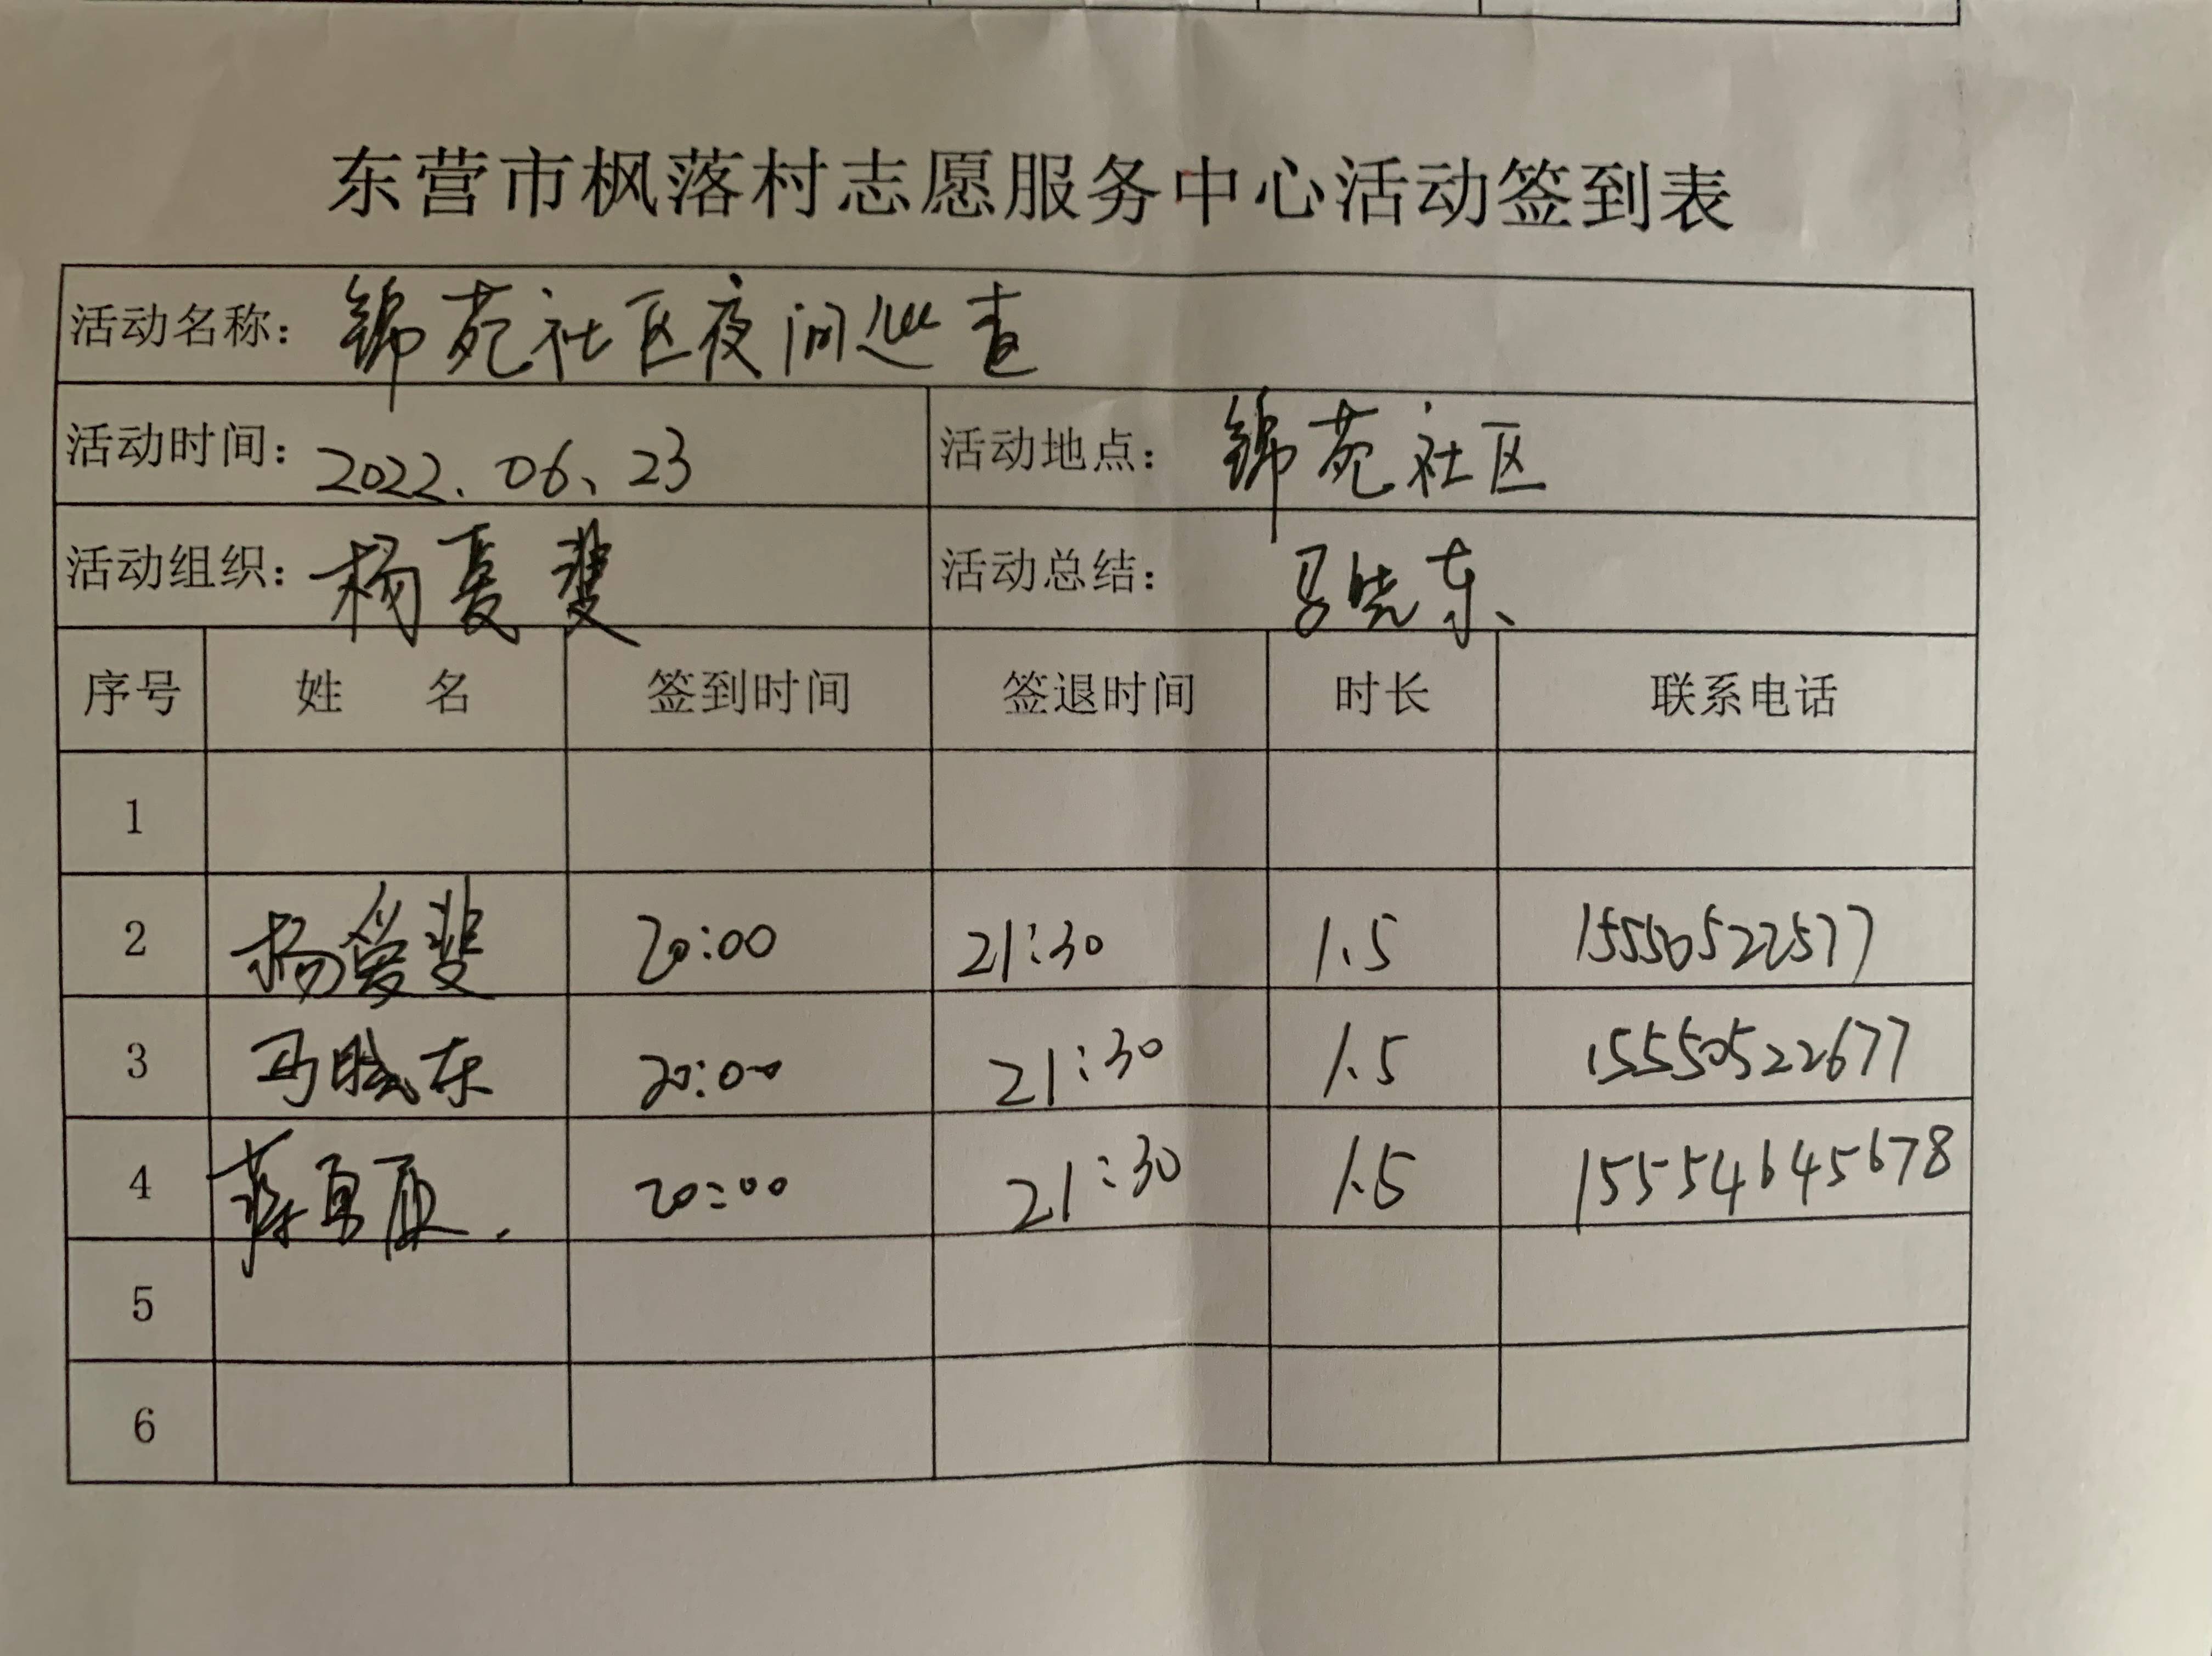 东营市枫落村志愿服务中心活动签到表
活动名称：锦苑社区夜间巡查
活动时间：2022.06、23 活动地点：锦苑社区
活动组织：杨夏斐 活动总结：马晓东
序号 姓名 签到时间 签退时间 时长 联系电话
1
2 20:00 21:30 1.5 15550522577
3 马晓东 20:00 21:30 1.5 15550522677
4 20:00 21:30 1.5 15554645678
5
6